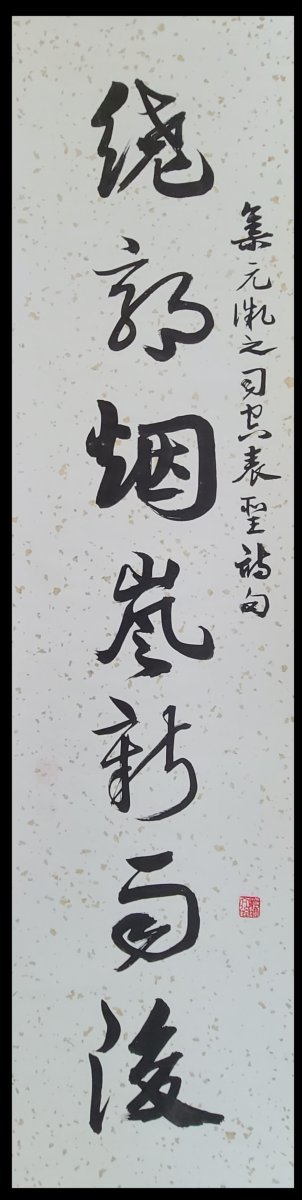 集元微之司空表聖詩句
繞郭烟嵐新雨後